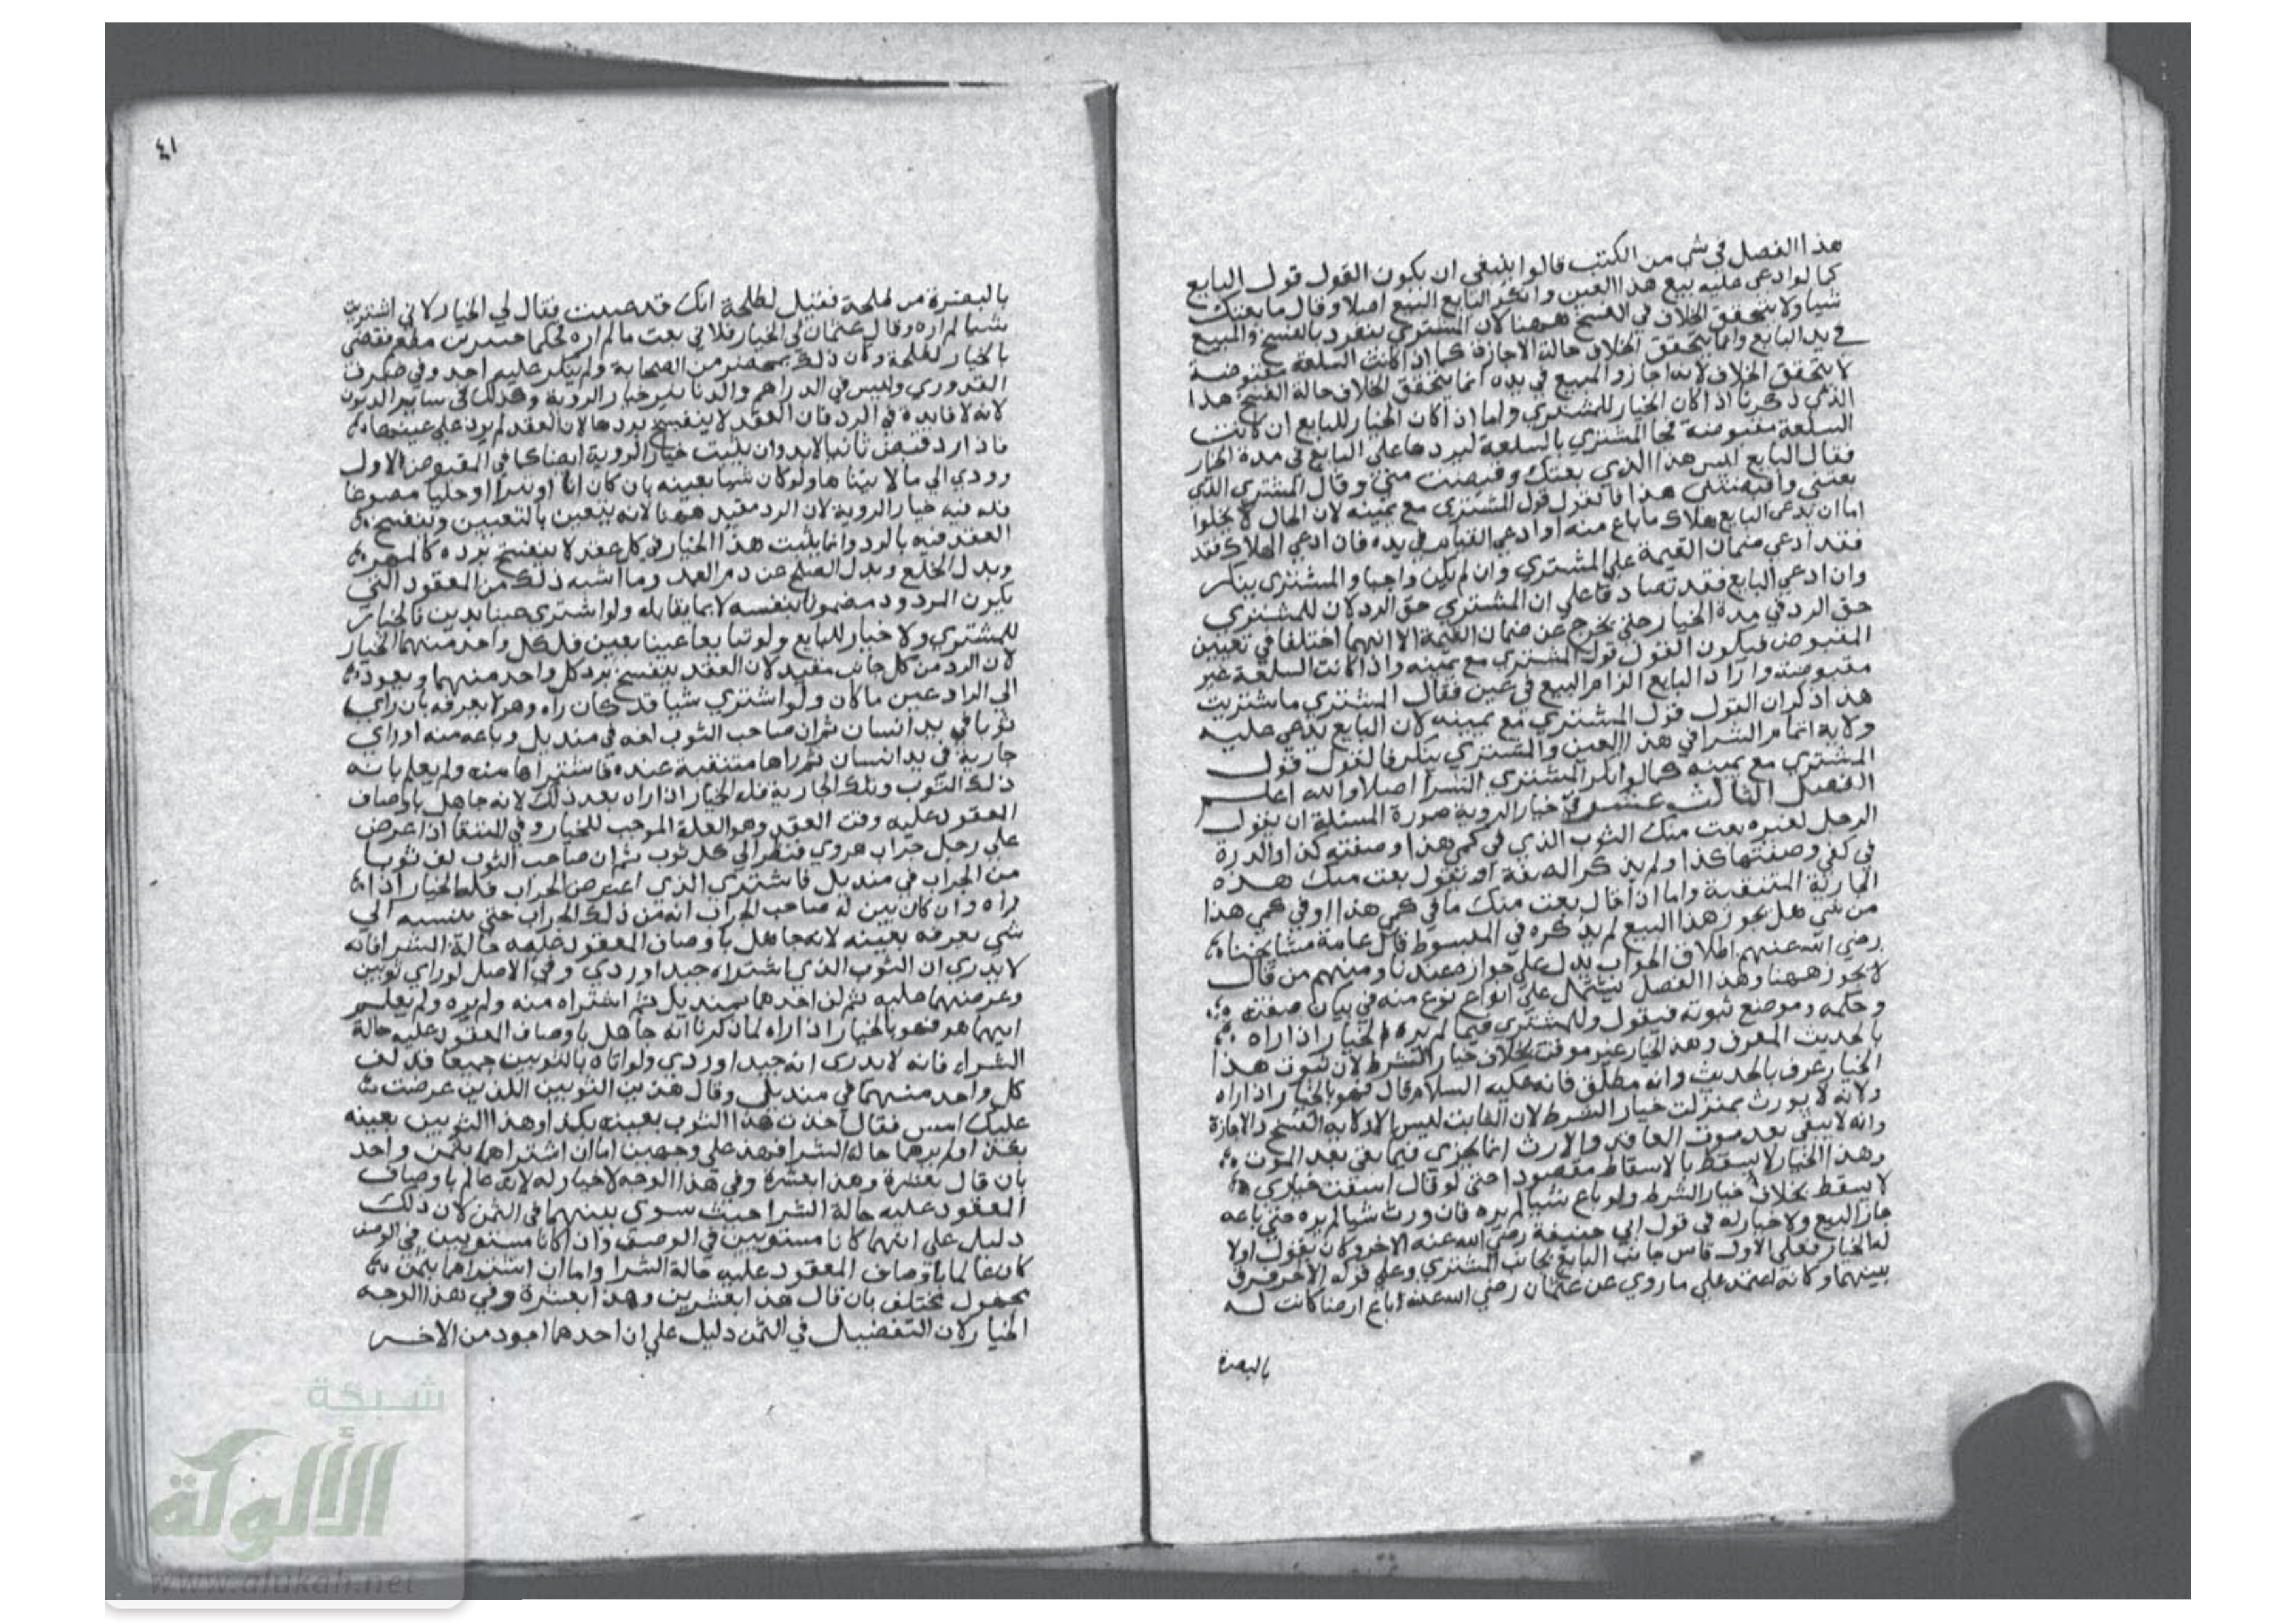 هذا الفصل في شي من الكتب قالوا ينبغي ان يكون القول قول البايع
كما لو ادعى عليه بيع هذا العين وانكر البايع البيع اصلا وقال ما بعتك
شيا ولا يتحقق الخلاف في الفسخ ههنا لان المشتري ينفرد بالفسخ والمبيع
في يد البايع وانما يتحقق الخلاف حالة الاجازة كما اذا كانت السلعة مقبوضة
لا يتحقق الخلاف لانه اجاز والمبيع في يده انما يتحقق الخلاف حالة الفسخ هذا
الذي ذكرنا اذا كان الخيار للمشتري واما اذا كان الخيار للبايع ان كانت
السلعة مقبوضة فجا المشتري بالسلعة ليردها على البايع في مدة الخيار
فقال البايع ليس هذا الذي بعتك وقبضت مني وقال المشتري الذي
بعتني واقبضتني هذا فالقول قول المشتري مع يمينه لان الحال لا يخلوا
اما ان يدعى البايع هلاك ما باع منه او ادعي القيام في يده فان ادعي الهلاك فقد
فقد ادعي ضمان القيمة علي المشتري وان لم يكن واجبا والمشتري ينكر
وان ادعي البايع فقد تصادقا علي ان المشتري حق الرد لان للمشتري
حق الرد في مدة الخيار حتي يخرج عن ضمان القيمة الا انهما اختلفا في تعيين
المقبوض فيكون القول قول المشتري مع يمينه واذا كانت السلعة غير
مقبوضة واراد البايع الزام البيع في عين فقال المشتري ما شتريت
هذا ذكر ان القول قول المشتري مع يمينه لان البايع يدعى عليه
ولاية اتمام الشرا في هذا العين والمشتري ينكر فالقول قول
المشتري مع يمينه كما لو انكر المشتري الشرا اصلا والله اعلم
الفصل الثالث عشر في خيار الروية صورة المسئلة ان يقول
الرجل لغيره بعت منك الثوب الذي في كمي هذا وصفته كذا او الدرة
في كفي وصفتها كذا ولم يذكر الصفة او يقول بعت منك هذه
الجارية المتنقبة واما اذا قال بعت منك ما في كمي هذا او في كمي هذا
من شي هل يجوز هذا البيع لم يذكره في المبسوط قال عامة مشايخنا
رضي الله عنهم اطلاق الجواب يدل علي جوازه عندنا ومنهم من قال
لا يجوز ههنا وهذا الفصل يشتمل علي انواع نوع منه في بيان صفته
وحكمه وموضع ثبوته فيقول وللمشتري فيما لم يره الخيار اذا اراه
بالحديث المعرف وهذا الخيار غير موقت بخلاف خيار الشرط لان ثبوت هذا
الخيار عرف بالحديث وانه مطلق فانه عليه السلام قال فهو بالخيار اذا اراه
ولانه لا يورث بمنزلت خيار الشرط لان الثابت ليس الا ولاية الفسخ والاجازة
وانه لا يبقي بعد موت العاقد والارث انما يجزي فيما بقي بعد الموت
وهذا الخيار لا يسقط بالاسقاط مقصودا حتي لو قال اسقت خياري
لا يسقط بخلاف خيار الشرط ولو باع شيا لم يره فان ورث شيا لم يره حتي باعه
جاز البيع ولا خيار له في قول ابي حنيفة رضي الله عنه الاخر وكان يقول اولا
له الخيار فعلي الاول قاس جانب البايع بجانب المشتري وعلي قوله الاخر فرق
بينهما وكانه اعتمد علي ما روي عن عثمان رضي الله عنه اباع ارضا كانت له
بالبصرة
٤١
بالبصرة من طلحة فقيل لطلحة انك قد غبنت فقال لي الخيار لاني اشتريت
شيا لم اره وقال عثمان لي الخيار فلاني بعت ما لم اره فحكما جبير بن مطعم فقضى
بالخيار لطلحة وكان ذلك بمحضر من الصحابة ولم ينكر عليه احد وفي صرف
القدوري وليس في الدراهم والدنانير خيار الروية وكذلك في ساير الديون
لانه لا فايدة في الرد فان العقد لا ينفسخ بردها لان العقد لم يرد علي عينها
فاذا رد قبض ثانيا لابد وان يثبت خيار الروية ايضا كما في المقبوض الاول
وودي الي ما لا يتناها ولو كان شيا بعينه بان كان انا او تبرا او حليا مصوغا
فله فيه خيار الروية لان الرد مفيد ههنا لانه يتعين بالتعيين وينفسخ
العقد فيه بالرد وانما يثبت هذا الخيار في كل عقد لا ينفسخ برده كالمهر
وبدل الخلع وبدل الصلح عن دم العمد وما اشبه ذلك من العقود التي
يكون المردود مضمونا بنفسه لا بما يقابله ولو اشتري عينا بدين فالخيار
للمشتري ولا خيار للبايع ولو تبايعا عينا بعين فلكل واحد منهما الخيار
لان الرد من كل جانب مفيد لان العقد ينفسخ برد كل واحد منهما ويعود
الي الراد عين ما كان ولو اشتري شيا قد كان راه وهو لا يعرفه بان راي
ثوبا في يد انسان ثم ان صاحب الثوب لفه في منديل وباعه منه او راي
جارية في يد انسان ثم راها متنقبة عنده فاشتراها منه ولم يعلم بانه
ذلك الثوب وتلك الجارية فله الخيار اذا راه بعد ذلك لانه جاهل باوصاف
المعقود عليه وقت العقد وهو العلة الموجب للخيار وفي المنتقا اذا عرض
علي رجل جراب هروي فنظر الي كل ثوب ثم ان صاحب الثوب لف ثوبا
من الجراب في منديل فاشتري الذي اعترض الجراب فله الخيار اذا
راه وان كان بين له صاحب الجراب انه من ذلك الجراب حتي ينسبه الي
شي يعرفه بعينه لانه جاهل باوصاف المعقود عليه حالة الشرا فانه
لا يدري ان الثوب الذي اشتراه جيد او ردي وفي الاصل لو راي ثوبين
وعرضهما عليه ثم لف احدهما بمنديل ثم اشتراه منه ولم يره ولم يعلم
ايهما هو فهو بالخيار اذا اراه لما ذكرنا انه جاهل باوصاف المعقود عليه حالة
الشراء فانه لا يدرى انه جيد او ردي ولو اتاه بالثوبين جميعا قد لف
كل واحد منهما في منديل وقال هذين الثوبين اللذين عرضت
عليك امس فقال اخذت هذا الثوب بعينه بكذا وهذا الثوبين بعينه
بكذا ولم يرهما حالة الشرا فهذا علي وجهين اما ان اشتراهما بثمن واحد
بان قال بعشرة وهذا بعشرة وفي هذا الوجه لا خيار له لانه عالم باوصاف
المعقود عليه حالة الشرا حيث سوي بينهما في الثمن لان ذلك
دليل علي انهما كانا مستويين في الوصف وان كانا مستويين في الوصف
كان عالما باوصاف المعقود عليه حالة الشرا واما ان اشتراهما بثمن
مختلف بان قال هذا بعشرين وهذا بعشرة وفي هذا الوجه
الخيار لان التفضيل في الثمن دليل علي ان احدهما اجود من الاخر
شبكة
الألوكة
www.alukah.net